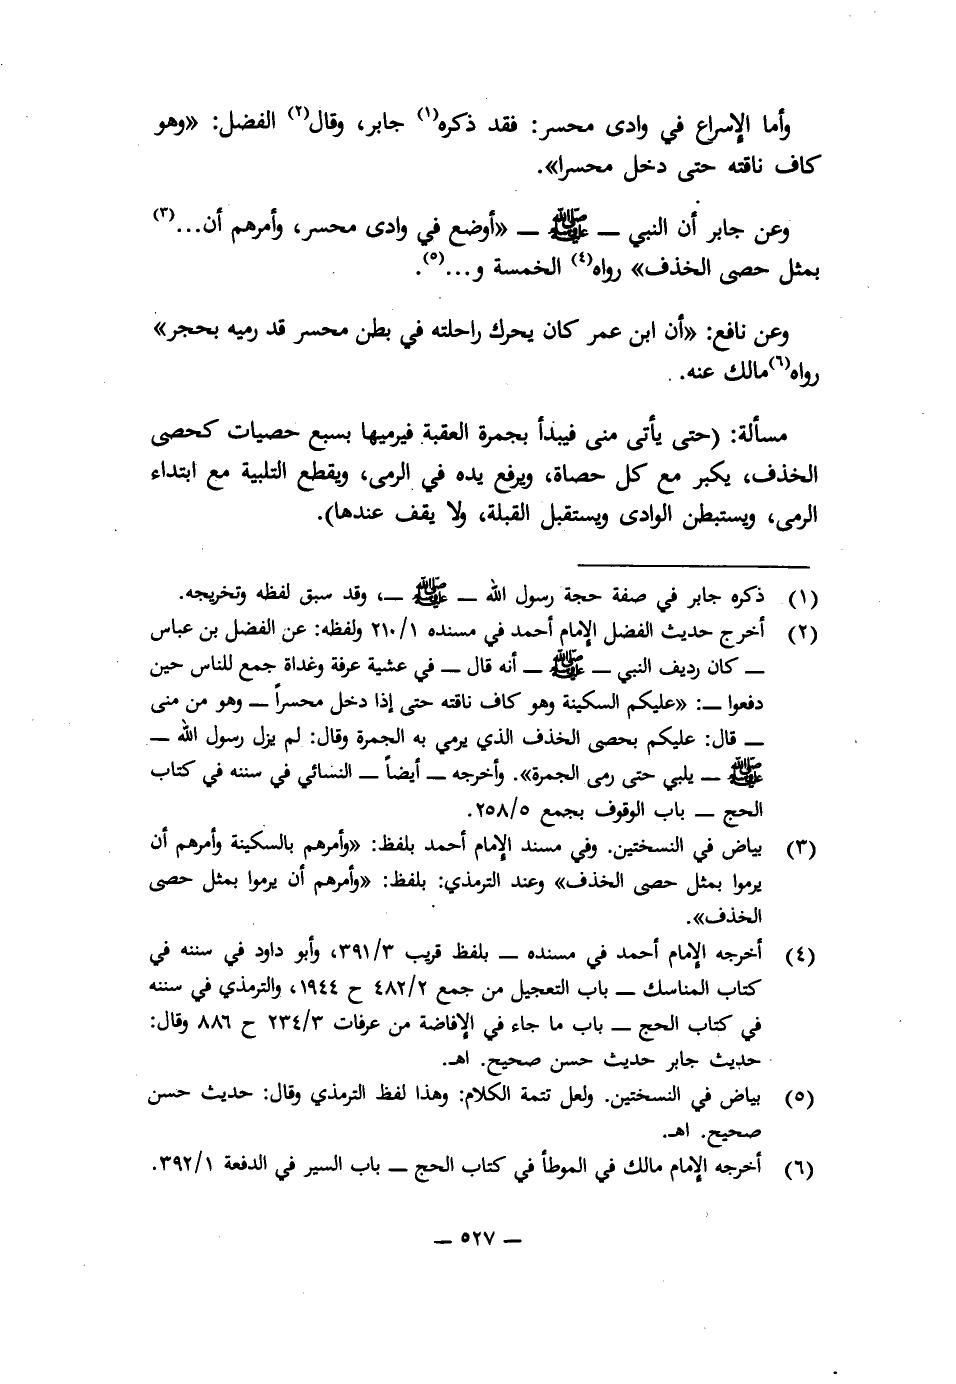 وأما الإسراع في وادى محسر: فقد ذكره(١) جابر، وقال(٢) الفضل: «وهو
كاف ناقته حتى دخل محسرا».
وعن جابر أن النبي — ﷺ — «أوضع في وادى محسر، وأمرهم أن...(٣)
بمثل حصى الخذف» رواه(٤) الخمسة و...(٥).
وعن نافع: «أن ابن عمر كان يحرك راحلته في بطن محسر قد رميه بحجر»
رواه(٦) مالك عنه.
مسألة: (حتى يأتى منى فيبدأ بجمرة العقبة فيرميها بسبع حصيات كحصى
الخذف، يكبر مع كل حصاة، ويرفع يده في الرمى، ويقطع التلبية مع ابتداء
الرمى، ويستبطن الوادى ويستقبل القبلة، ولا يقف عندها).
(١) ذكره جابر في صفة حجة رسول الله — ﷺ —، وقد سبق لفظه وتخريجه.
(٢) أخرج حديث الفضل الإمام أحمد في مسنده ٢١٠/١ ولفظه: عن الفضل بن عباس
— كان رديف النبي — ﷺ — أنه قال — في عشية عرفة وغداة جمع للناس حين
دفعوا —: «عليكم السكينة وهو كاف ناقته حتى إذا دخل محسراً — وهو من منى
— قال: عليكم بحصى الخذف الذي يرمي به الجمرة وقال: لم يزل رسول الله —
ﷺ — يلبي حتى رمى الجمرة». وأخرجه — أيضاً — النسائي في سننه في كتاب
الحج — باب الوقوف بجمع ٢٥٨/٥.
(٣) بياض في النسختين. وفي مسند الإمام أحمد بلفظ: «وأمرهم بالسكينة وأمرهم أن
يرموا بمثل حصى الخذف» وعند الترمذي: بلفظ: «وأمرهم أن يرموا بمثل حصى
الخذف».
(٤) أخرجه الإمام أحمد في مسنده — بلفظ قريب ٣٩١/٣، وأبو داود في سننه في
كتاب المناسك — باب التعجيل من جمع ٤٨٢/٢ ح ١٩٤٤، والترمذي في سننه
في كتاب الحج — باب ما جاء في الإفاضة من عرفات ٢٣٤/٣ ح ٨٨٦ وقال:
حديث جابر حديث حسن صحيح. اهـ.
(٥) بياض في النسختين. ولعل تتمة الكلام: وهذا لفظ الترمذي وقال: حديث حسن
صحيح. اهـ.
(٦) أخرجه الإمام مالك في الموطأ في كتاب الحج — باب السير في الدفعة ٣٩٢/١.
— ٥٢٧ —